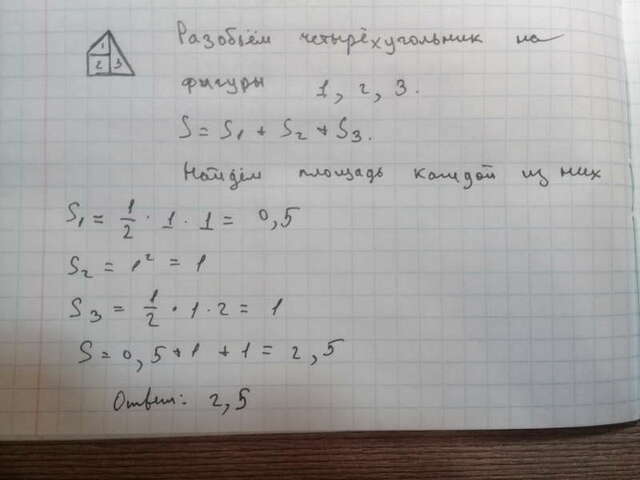 Разобьём четырёхугольник на
фигуры 1, 2, 3.
S = S₁ + S₂ + S₃.
Найдём площадь каждой из них
S₁ = 1/2 · 1 · 1 = 0,5
S₂ = 1² = 1
S₃ = 1/2 · 1 · 2 = 1
S = 0,5 + 1 + 1 = 2,5
Ответ: 2,5
1
2
3